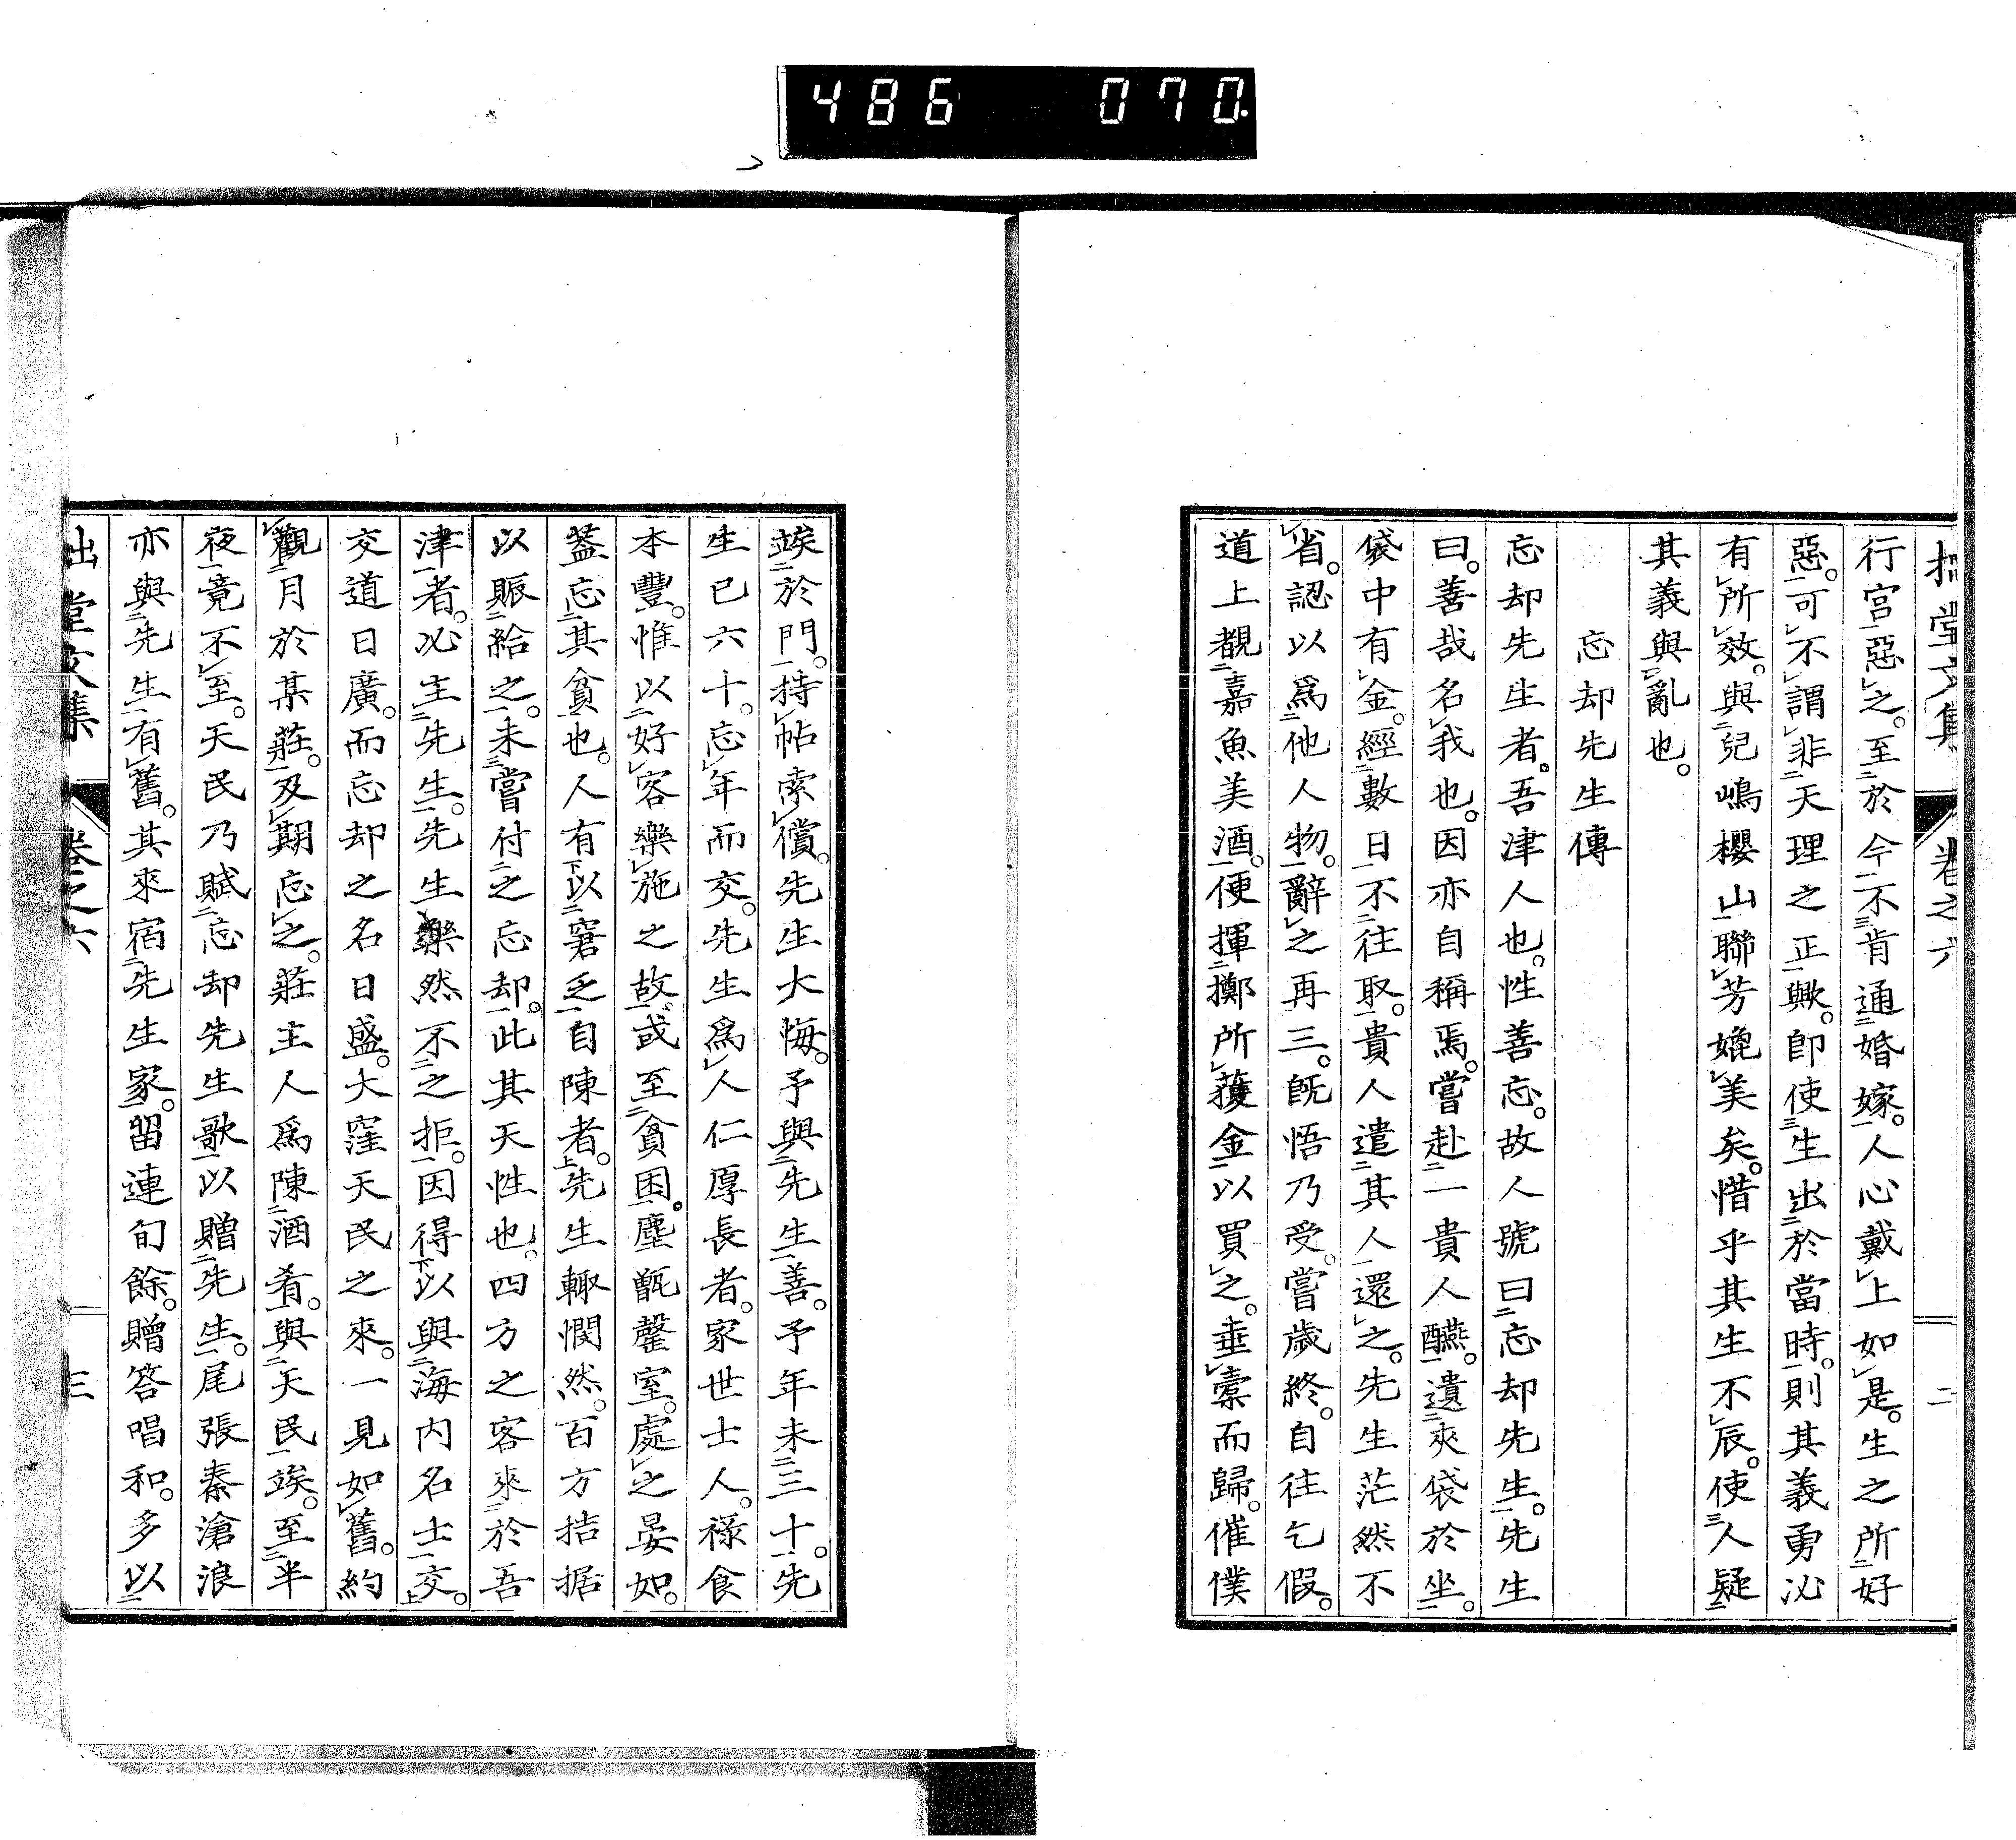 486 070.
拙堂文集 卷之六 二
行宮惡之。至於今不肯通婚嫁。人心戴上如是。生之所好
惡。可不謂非天理之正歟。即使生出於當時。則其義勇必
有所效。與兒嶋櫻山聯芳媲美矣。惜乎其生不辰。使人疑
其義與亂也。
忘却先生傳
忘却先生者。吾津人也。性善忘。故人號曰忘却先生。先生
曰。善哉名我也。因亦自稱焉。嘗赴一貴人醼。遺夾袋於坐。
袋中有金。經數日不往取。貴人遣其人還之。先生茫然不
省。認以爲他人物。辭之再三。既悟乃受。嘗歲終。自往乞假。
道上覩嘉魚美酒。便揮擲所獲金以買之。垂橐而歸。催僕
竢於門。持帖索償。先生大悔。予與先生善。予年未三十。先
生已六十。忘年而交。先生爲人仁厚長者。家世士人。祿食
本豐。惟以好客樂施之故。或至貧困。塵甑罄室。處之晏如。
葢忘其貧也。人有以窘乏自陳者。先生輙憫然。百方拮据
以賑給之。未嘗付之忘却。此其天性也。四方之客來於吾
津者。必主先生。先生樂然不之拒。因得以與海内名士交。
交道日廣。而忘却之名日盛。大窪天民之來。一見如舊。約
觀月於某莊。及期忘之。莊主人爲陳酒肴。與天民竢。至半
夜竟不至。天民乃賦忘却先生歌以贈先生。尾張秦滄浪
亦與先生有舊。其來宿先生家。留連旬餘。贈答唱和。多以
拙堂文集 卷之六 三